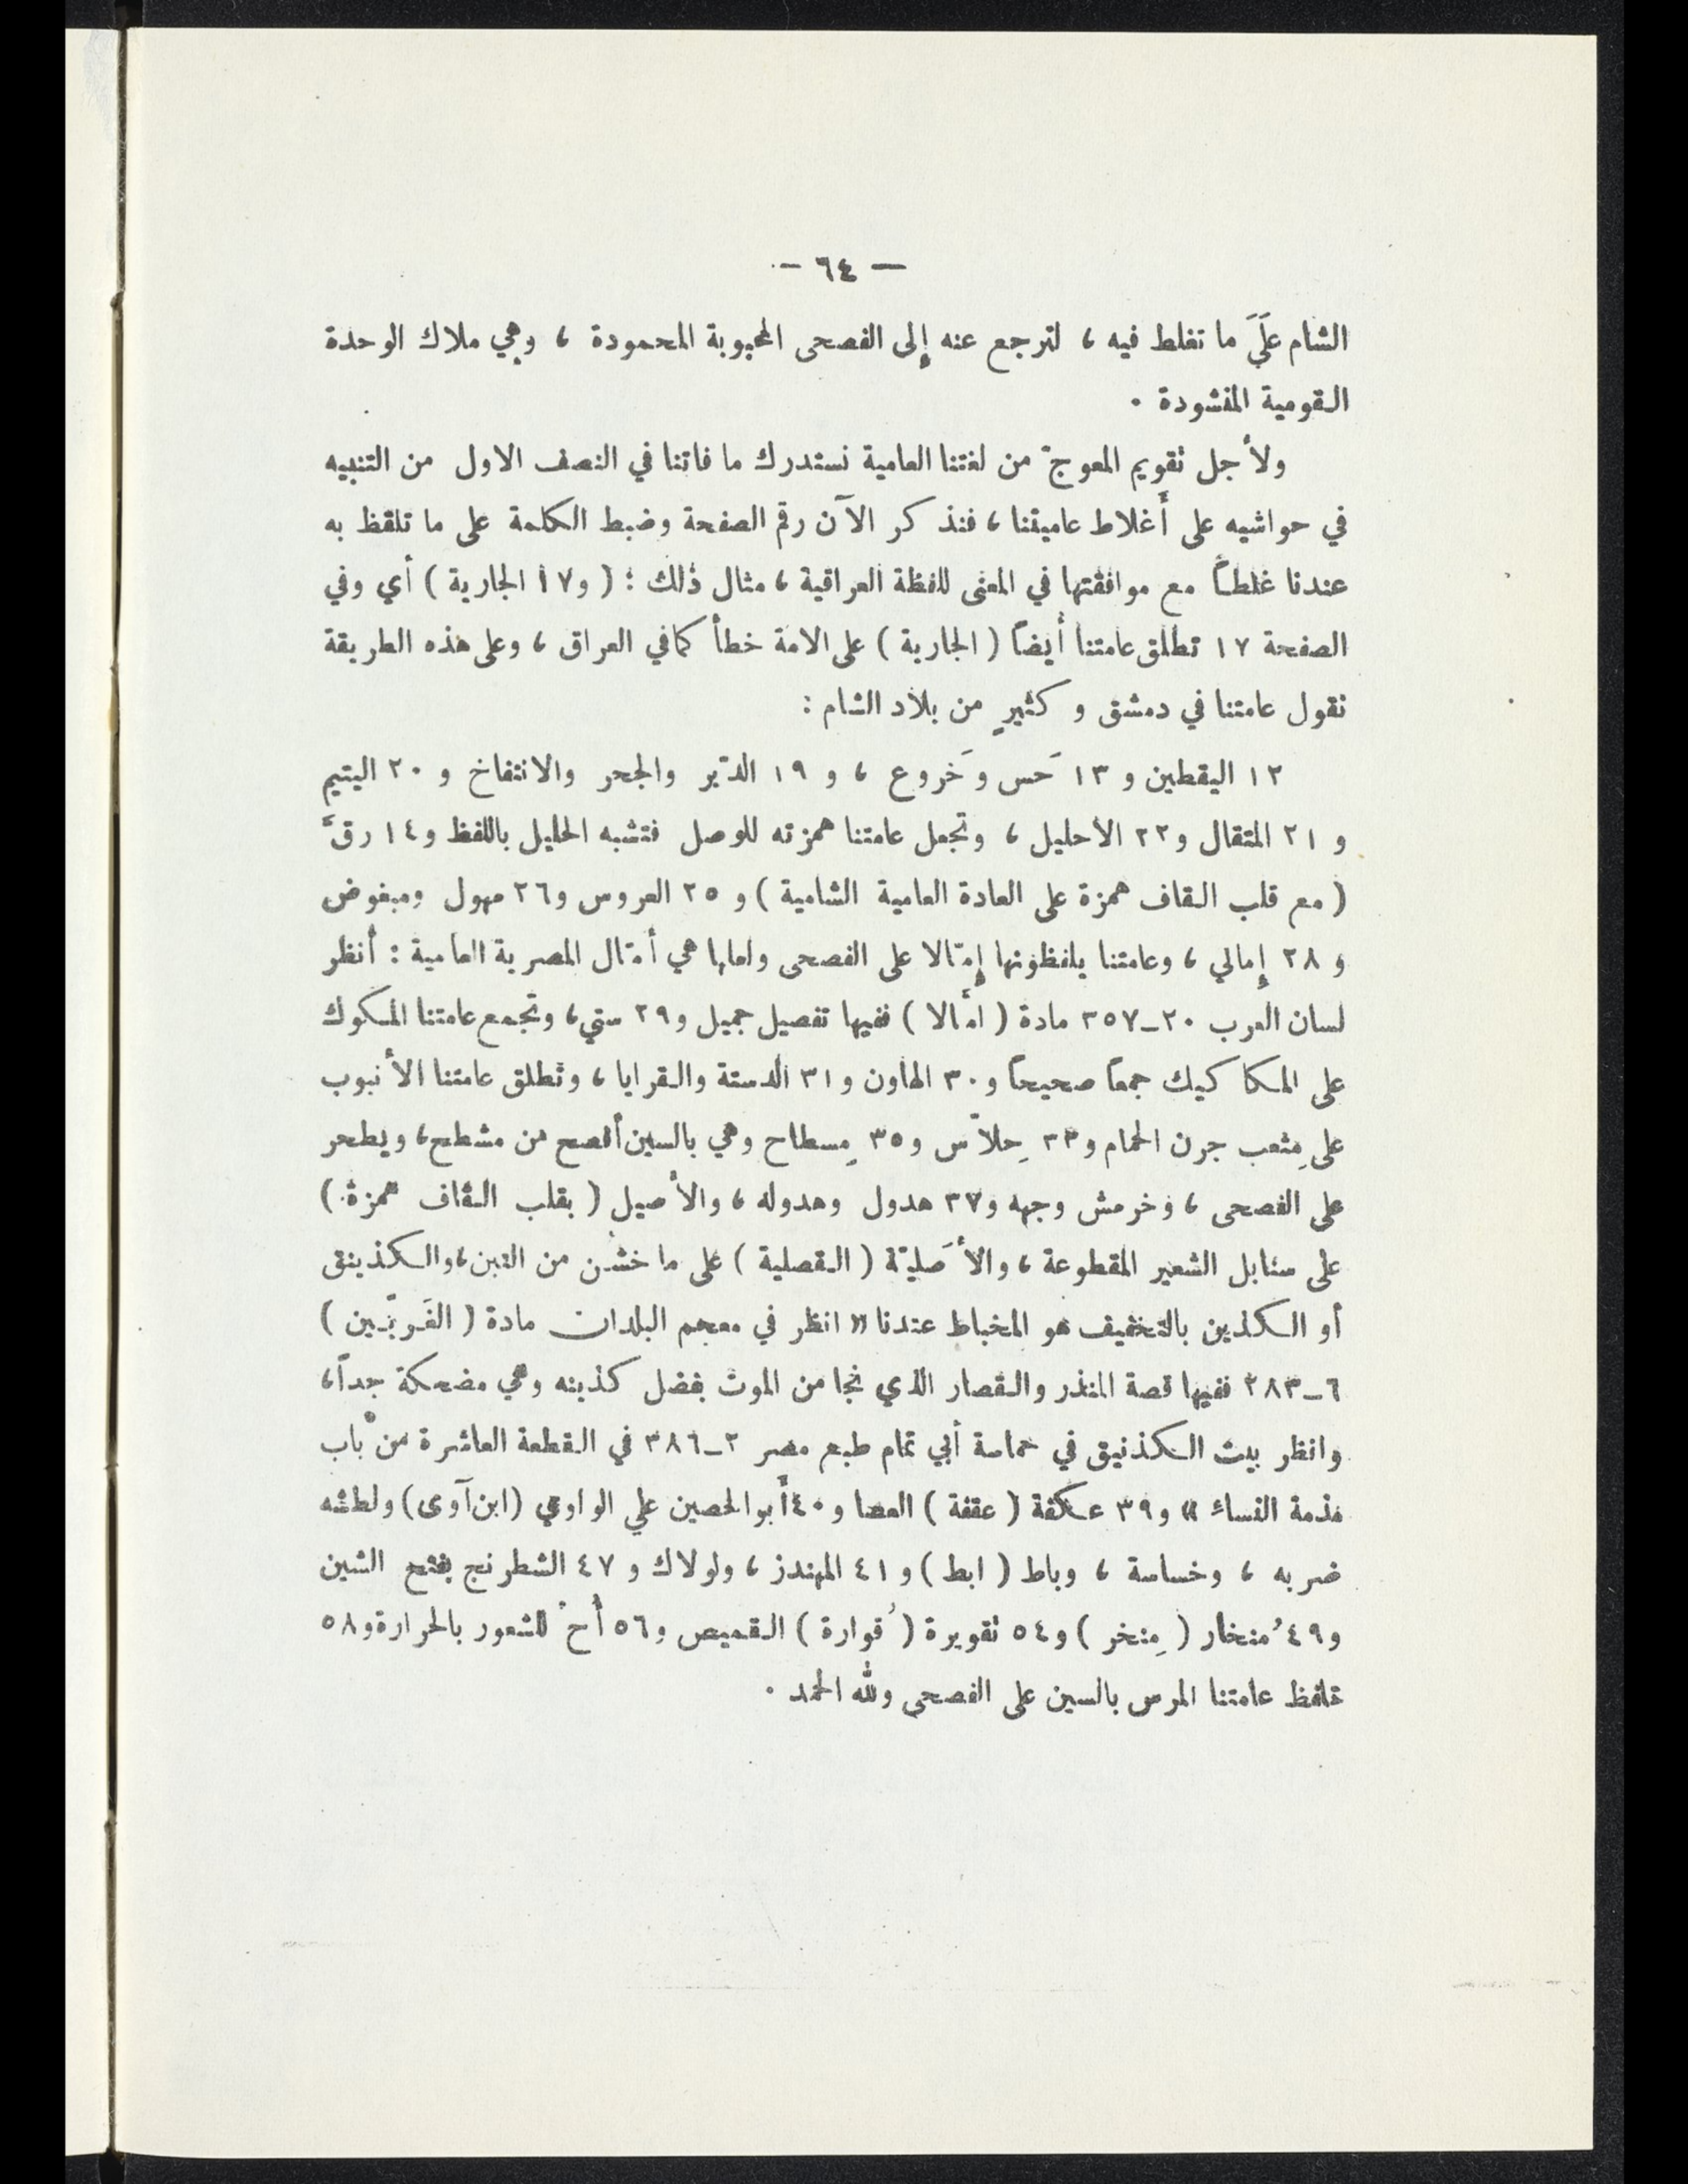 — ٦٤ —
الشام عَلَى ما تغلط فيه ، لترجع عنه إِلى الفصحى المحبوبة المحمودة ، وهي ملاك الوحدة
القومية المنشودة ٠
ولأجل تقويم المعوجّ من لغتنا العامية نستدرك ما فاتنا في النصف الاول من التنبيه
في حواشيه على أَغلاط عاميتنا ، فنذكر الآن رقم الصفحة وضبط الكلمة على ما تلفظ به
عندنا غلطاً مع موافقتها في المعنى للفظة العراقية ، مثال ذلك : ( و١٧ الجارية ) أي وفي
الصفحة ١٧ تطلق عامتنا أيضاً ( الجارية ) على الامة خطأ كما في العراق ، وعلى هذه الطريقة
نقول عامتنا في دمشق و كثيرٍ من بلاد الشام :
١٢ اليقطين و ١٣ حَس وخَروع ، و ١٩ الدّبر والجحر والانتفاخ و ٢٠ اليتيم
و ٢١ المتقال و٢٢ الأحليل ، وتجعل عامتنا همزته للوصل فتشبه الحليل باللفظ و١٤ رقّ
( مع قلب القاف همزة على العادة العامية الشامية ) و ٢٥ العروس و٢٦ مهول ومبغوض
و ٢٨ إِمالي ، وعامتنا يلفظونها إِمّالا على الفصحى وامالها هي أمّال المصرية العامية : أنظر
لسان العرب ٢٠-٣٥٧ مادة ( امّالا ) ففيها تفصيل جميل و٢٩ ستي ، وتجمع عامتنا المكوك
على المكاكيك جمعاً صحيحاً و٣٠ الهاون و٣١ الدستة والقرايا ، وتطلق عامتنا الأنبوب
على مِثعب جرن الحمام و٣٣ حِلاّس و٣٥ مِسطاح وهي بالسين أفصح من مشطح ، ويطحر
على الفصحى ، وخرمش وجهه و٣٧ هدول وهدوله ، والأصيل ( بقلب القاف همزة )
على سنابل الشعير المقطوعة ، والأَصليّة ( القصلية ) على ما خشن من التبن ، والكذينق
أو الكذين بالتخفيف هو المخباط عندنا « انظر في معجم البلدان مادة ( الغَريّين )
٦-٢٨٣ ففيها قصة المنذر والقصار الذي نجا من الموت بفضل كذينه وهي مضحكة جداً ،
وانظر بيت الكذنيق في حماسة أبي تمام طبع مصر ٢-٣٨٦ في القطعة العاشرة من باب
مذمة النساء » و٣٩ عكفة ( عقفة ) العصا و٤٠ أبو الحصين على الواوي (ابن آوى) ولطشه
ضربه ، وخساسة ، وباط ( ابط ) و ٤١ المهندز ، ولولاك و ٤٧ الشطرنج بفتح الشين
و٤٩ مُنخار ( مِنخر ) و٥٤ تقويرة ( قُوارة ) القميص و٥٦ أح للشعور بالحرارة و٥٨
تلفظ عامتنا المرس بالسين على الفصحى ولله الحمد ٠